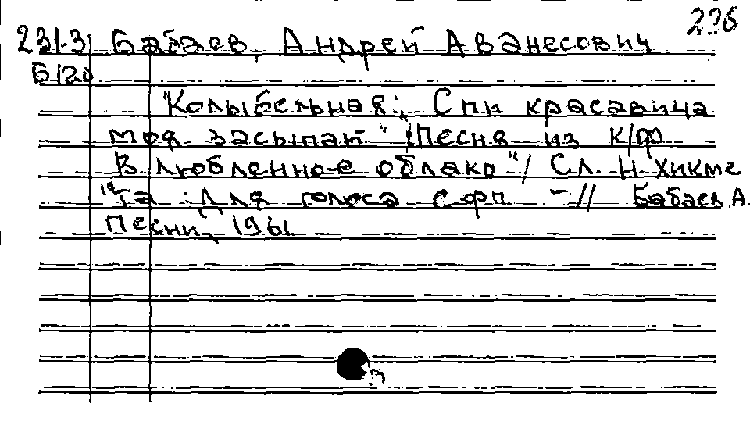 236
231-3 Бабаев, Андрей Аванесович
Б120
"Колыбельная: Спи красавица
моя засыпай" /Песня из к/ф
"Влюбленное облако"/ Сл. Н. Хикме
та. Для голоса с фп. -// Бабаев А.
Песни, 1961